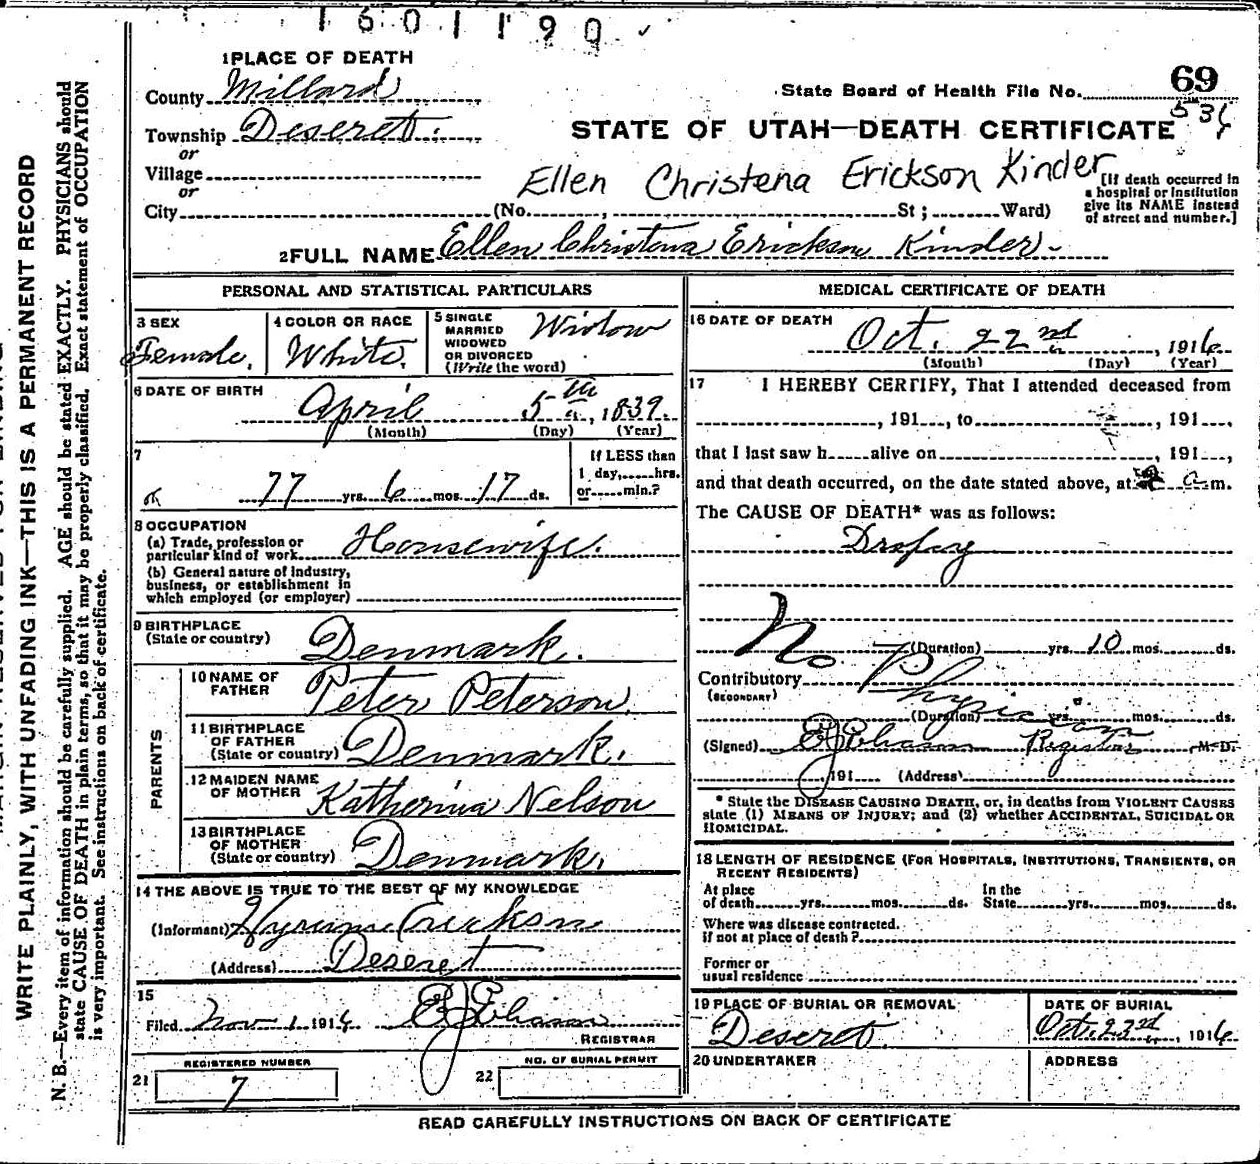 1601190
1 PLACE OF DEATH
County Millard
Township Deseret.
or
Village
or
City (No. , St ; Ward)
State Board of Health File No. 69
536
STATE OF UTAH—DEATH CERTIFICATE
Ellen Christena Erickson Kinder
[If death occurred in
a hospital or institution
give its NAME instead
of street and number.]
2 FULL NAME Ellen Christena Erickson Kinder
PERSONAL AND STATISTICAL PARTICULARS
3 SEX
Female.
4 COLOR OR RACE
White.
5 SINGLE
MARRIED
WIDOWED
OR DIVORCED
(Write the word)
Widow
6 DATE OF BIRTH
April 5th, 1839.
(Month) (Day) (Year)
7
77 yrs. 6 mos. 17 ds.
If LESS than
1 day, hrs.
or min.?
8 OCCUPATION
(a) Trade, profession or
particular kind of work Housewife.
(b) General nature of industry,
business, or establishment in
which employed (or employer)
9 BIRTHPLACE
(State or country) Denmark.
PARENTS
10 NAME OF
FATHER Peter Peterson
11 BIRTHPLACE
OF FATHER
(State or country) Denmark.
12 MAIDEN NAME
OF MOTHER Katherina Nelson
13 BIRTHPLACE
OF MOTHER
(State or country) Denmark.
14 THE ABOVE IS TRUE TO THE BEST OF MY KNOWLEDGE
(Informant) Hyrum Erickson
(Address) Deseret
15
Filed Nov 1, 1916
REGISTRAR
REGISTERED NUMBER
21 7
NO. OF BURIAL PERMIT
22
MEDICAL CERTIFICATE OF DEATH
16 DATE OF DEATH
Oct. 22nd, 1916
(Month) (Day) (Year)
17 I HEREBY CERTIFY, That I attended deceased from
, 191 , to , 191 ,
that I last saw h alive on , 191 ,
and that death occurred, on the date stated above, at a m.
The CAUSE OF DEATH* was as follows:
Dropsy
(Duration) yrs. 10 mos. ds.
No Physician
Contributory
(SECONDARY)
(Duration) yrs. mos. ds.
(Signed) Registrar M-D.
, 191 (Address)
* State the DISEASE CAUSING DEATH, or, in deaths from VIOLENT CAUSES
state (1) MEANS OF INJURY; and (2) whether ACCIDENTAL, SUICIDAL OR
HOMICIDAL.
18 LENGTH OF RESIDENCE (FOR HOSPITALS, INSTITUTIONS, TRANSIENTS, OR
RECENT RESIDENTS)
At place
of death yrs. mos. ds.
In the
State yrs. mos. ds.
Where was disease contracted.
if not at place of death ?
Former or
usual residence
19 PLACE OF BURIAL OR REMOVAL
Deseret.
DATE OF BURIAL
Oct. 23rd, 1916
20 UNDERTAKER
ADDRESS
READ CAREFULLY INSTRUCTIONS ON BACK OF CERTIFICATE
WRITE PLAINLY, WITH UNFADING INK—THIS IS A PERMANENT RECORD
N. B.—Every item of information should be carefully supplied. AGE should be stated EXACTLY. PHYSICIANS should
state CAUSE OF DEATH in plain terms, so that it may be properly classified. Exact statement of OCCUPATION
is very important. See instructions on back of certificate.